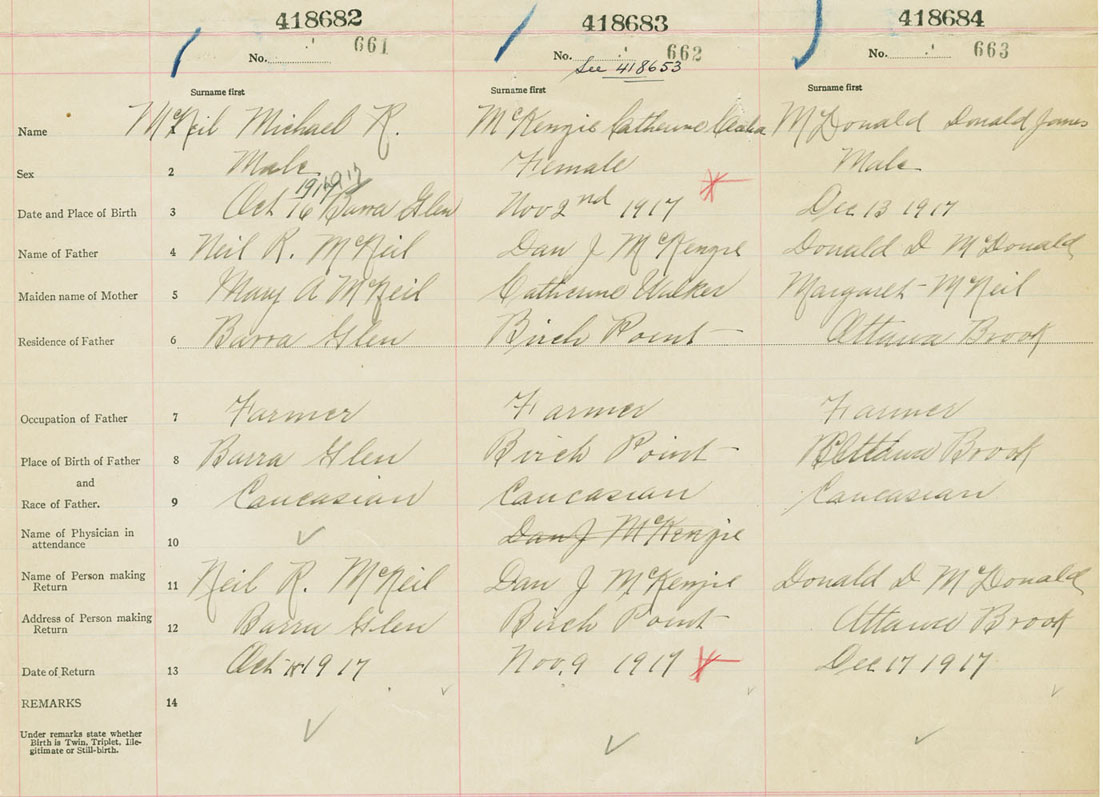 418682 418683 418684
No. 661 No. 662 No. 663
See 418653
Surname first Surname first Surname first
Name McNeil Michael R. McKenzie Catherine McDonald Donald James
Sex 2 Male Female Male
1917 1917
Date and Place of Birth 3 Oct 16 Barra Glen Nov 2nd 1917 Dec 13 1917
Name of Father 4 Neil R. McNeil Dan J McKenzie Donald D McDonald
Maiden name of Mother 5 Mary A McNeil Catherine Walker Margaret McNeil
Residence of Father 6 Barra Glen Birch Point Ottawa Brook
Occupation of Father 7 Farmer Farmer Farmer
Place of Birth of Father 8 Barra Glen Birch Point Ottawa Brook
and
Race of Father. 9 Caucasian Caucasian Caucasian
Name of Physician in
attendance 10 Dan J McKenzie
Name of Person making
Return 11 Neil R. McNeil Dan J McKenzie Donald D McDonald
Address of Person making
Return 12 Barra Glen Birch Point Ottawa Brook
Date of Return 13 Oct 1917 Nov. 9 1917 Dec 17 1917
REMARKS 14
Under remarks state whether
Birth is Twin, Triplet, Ille-
gitimate or Still-birth.